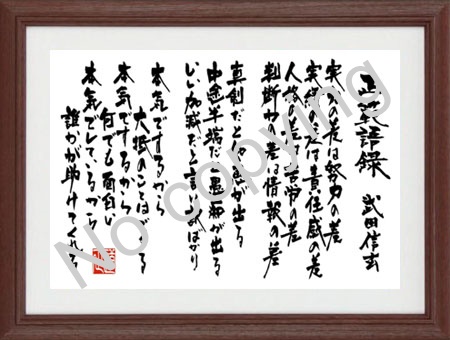 正範語録
武田信玄
実力の差は努力の差
実績の差は責任感の差
人格の差は苦労の差
判断力の差は情報の差
真剣だと知恵が出る
中途半端だと愚痴が出る
いい加減だと言い訳ばかり
本気でするから
大抵のことはできる
本気でするから
何でも面白い
本気でしているから
誰かが助けてくれる
No copying